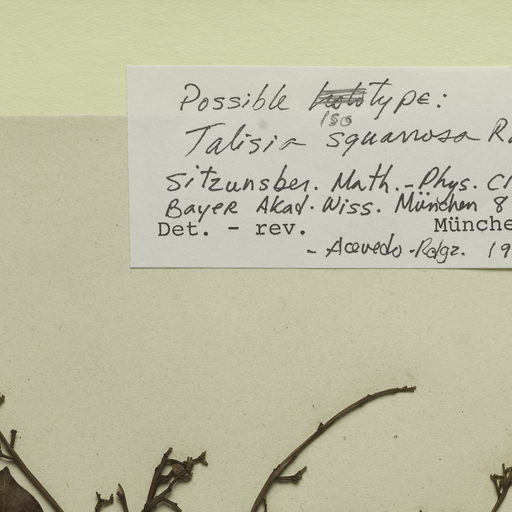 Possible isotype:
Talisia squarrosa R
Sitzunsber. Math.-Phys. Cl
Bayer Akad. Wiss. München 8
Det. - rev. Münche
- Acevedo-Rdgz. 19